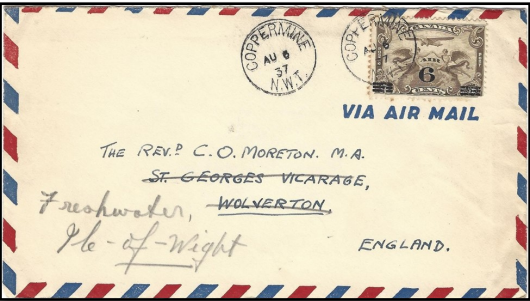 COPPERMINE
AU 6
37
N.W.T.
COPPERMINE
AU 6
CANADA
AIR
6
CENTS
VIA AIR MAIL
THE REV.D C. O. MORETON. M.A.
ST. GEORGES VICARAGE,
WOLVERTON,
Freshwater,
Ile-of-Wight
ENGLAND.